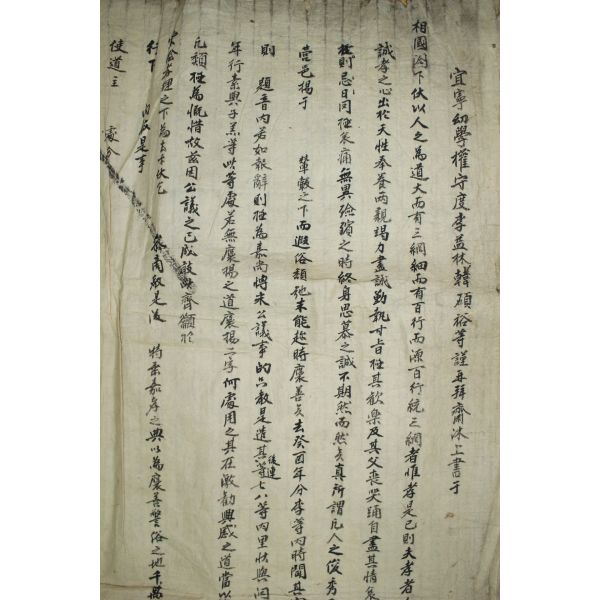 宜寧幼學權守度李益林韓碩裕等謹再拜齋沐上書于
相國閤下伏以人之爲道大而有三綱細而有百行而源百行統三綱者惟孝是已則夫孝者
誠孝之心出於天性奉養兩親竭力盡誠勤執甘旨任其歡樂及其父喪哭踊自盡其情哀
極則忌日同極哀痛無異殮殯之時終身思慕之誠不期然而然矣眞所謂凡人之俊秀
營邑揚于 輦轂之下而遐俗頹弛未能趁時褒善矣去癸酉年分李等內時聞其
則 題音內若如報辭則極爲嘉尙博采公議事的只敎是遣其後連等七八等內里狀與
年行素與子羔等此等處若無褒揚之道褒揚二字何處用之其在激勸興感之道當以
凡類極爲慨惜故玆因公議之已成敢此齊籲於
之下爲去乎伏乞
參商敎是後 特垂嘉孝之典以爲褒善警俗之地千萬
行下 向敎是事
使道主 處分